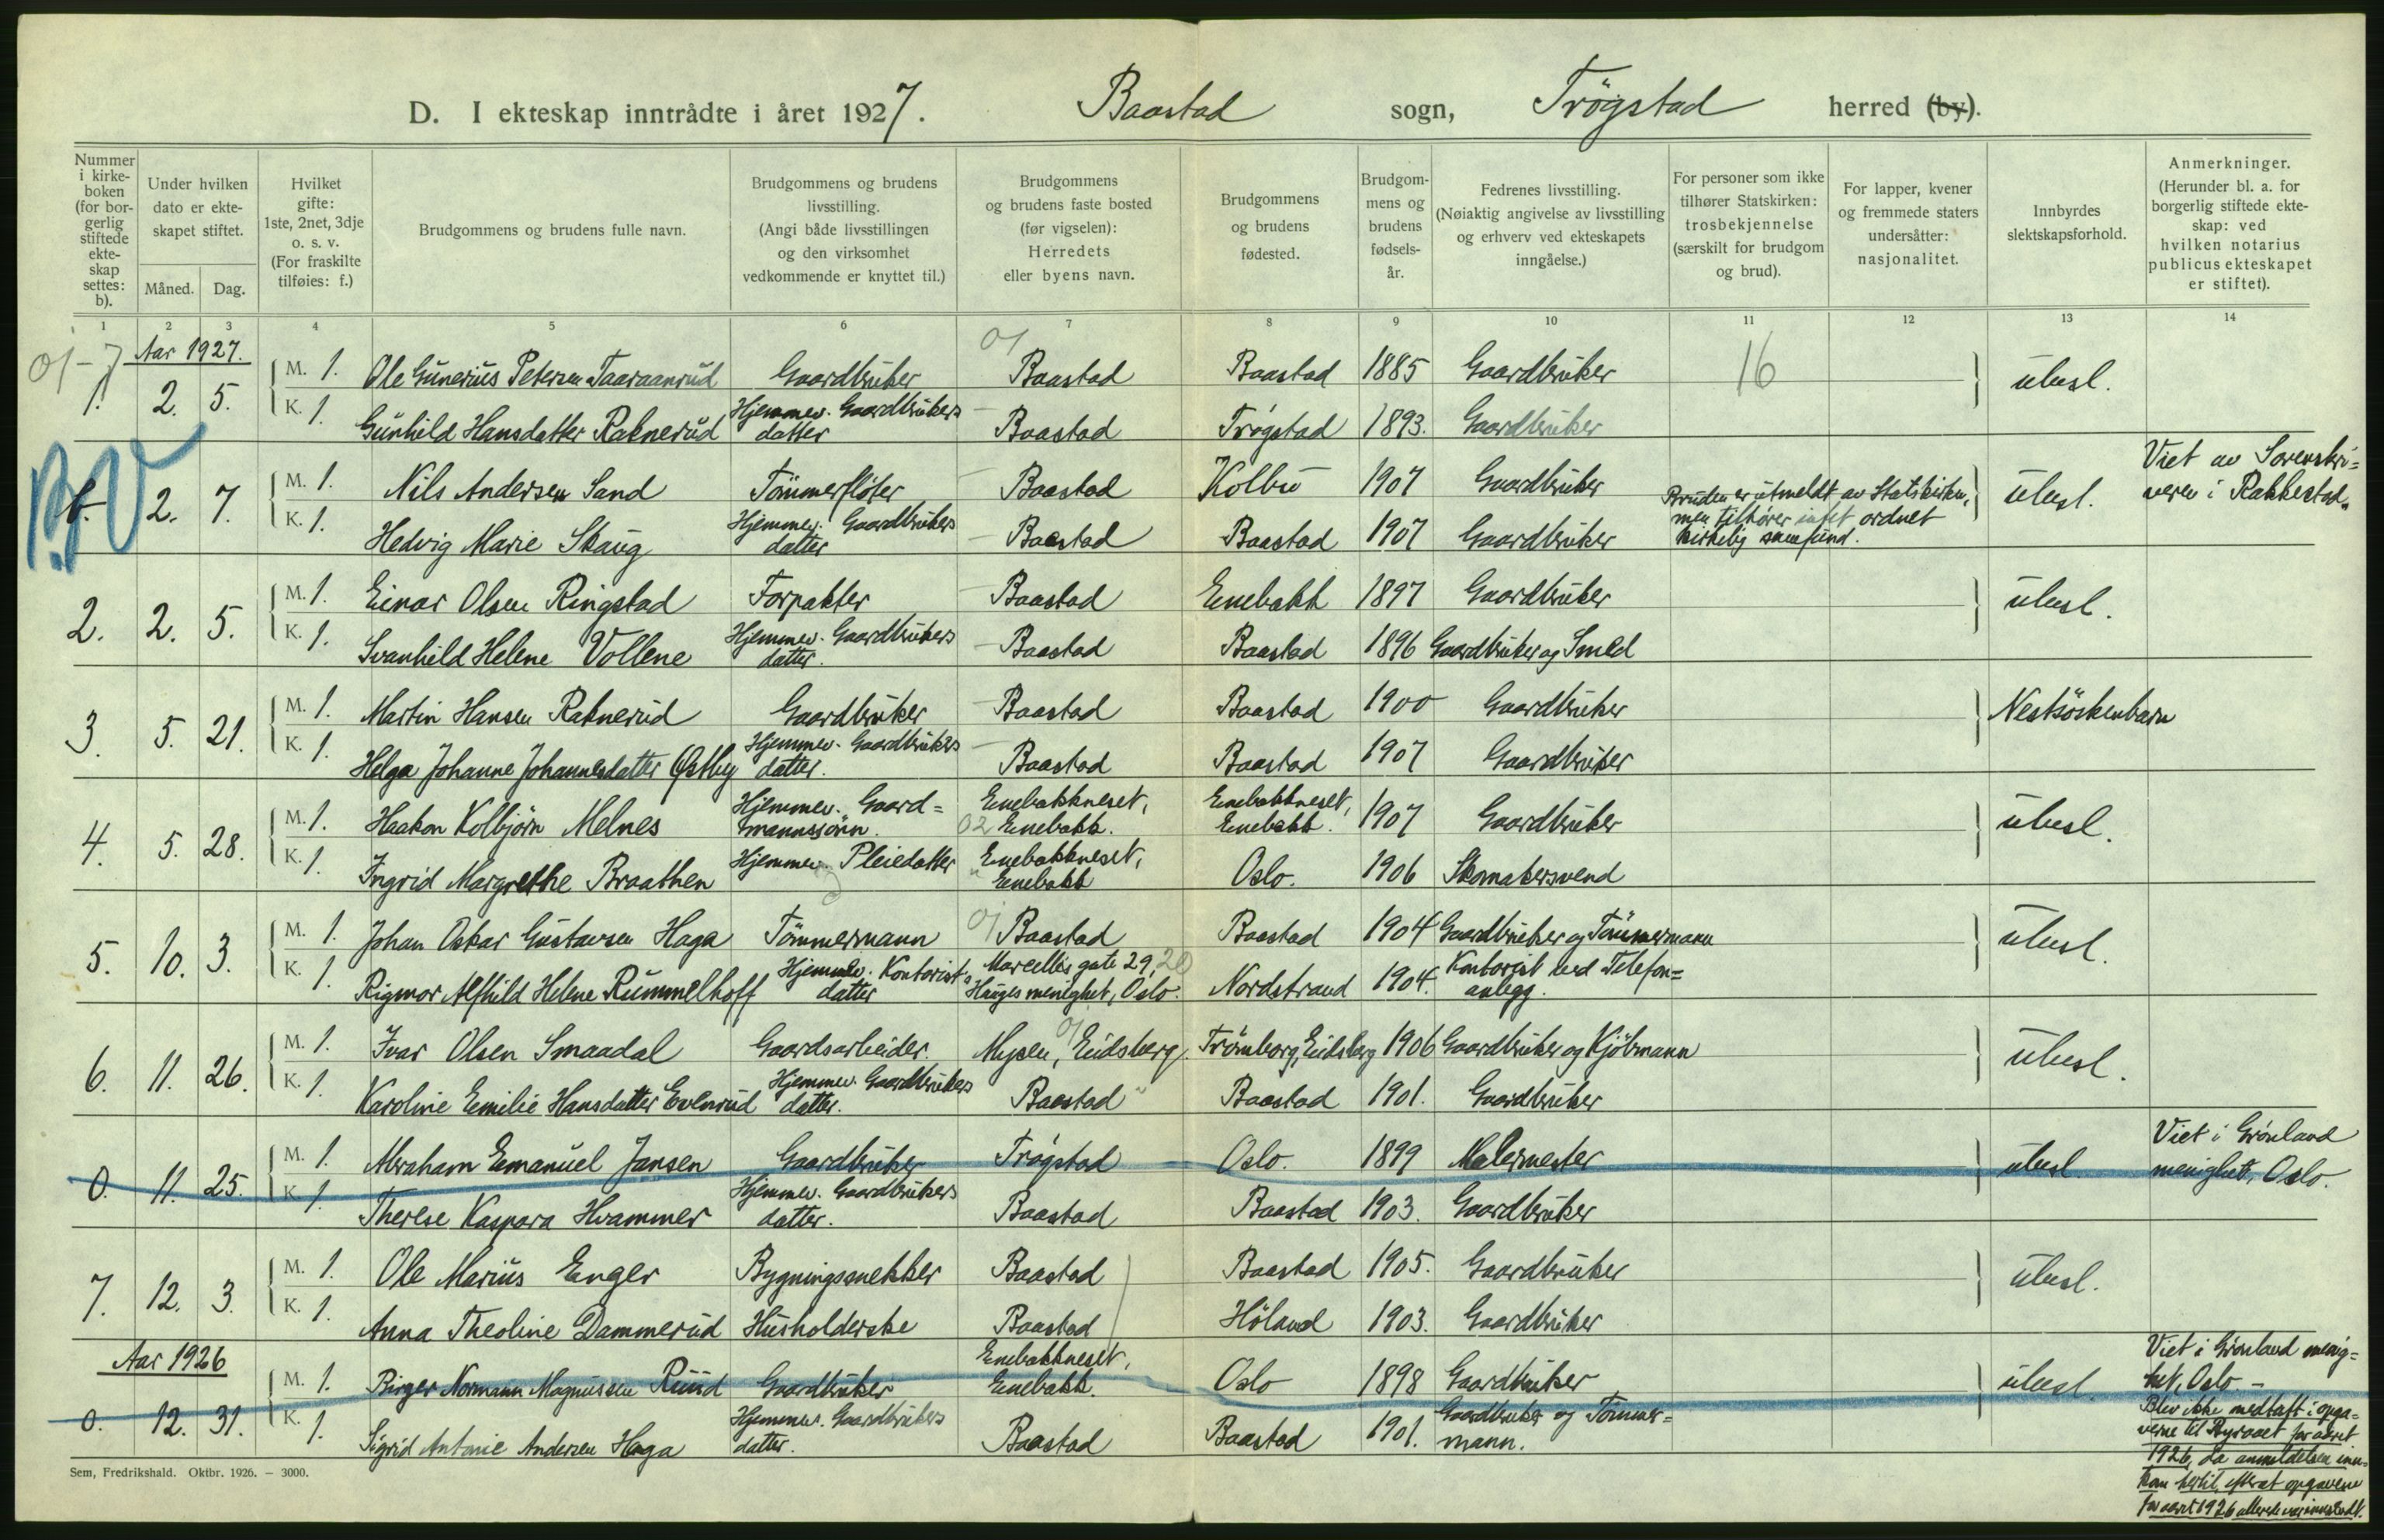 D. I ekteskap inntrådte i året 1927. Baastad sogn, Trögstad herred (by).
Nummer i kirkeboken (for borgerlig stiftede ekteskap settes: b).
Under hvilken dato er ekteskapet stiftet.
Måned. Dag.
Hvilket gifte: 1ste, 2net, 3dje o. s. v. (For fraskilte tilføies: f.)
Brudgommens og brudens fulle navn.
Brudgommens og brudens livsstilling. (Angi både livsstillingen og den virksomhet vedkommende er knyttet til.)
Brudgommens og brudens faste bosted (før vigselen): Herredets eller byens navn.
Brudgommens og brudens fødested.
Brudgommens og brudens fødselsår.
Fedrenes livsstilling. (Nøiaktig angivelse av livsstilling og erhverv ved ekteskapets inngåelse.)
For personer som ikke tilhører Statskirken: trosbekjennelse (særskilt for brudgom og brud).
For lapper, kvener og fremmede staters undersåtter: nasjonalitet.
Innbyrdes slektskapsforhold.
Anmerkninger. (Herunder bl. a. for borgerlig stiftede ekteskap: ved hvilken notarius publicus ekteskapet er stiftet).
1 2 3 4 5 6 7 8 9 10 11 12 13 14
01-7 Aar 1927. 01
1. 2. 5. M. 1. Ole Gunerius Petersen Taaraanrud Gaardbruker Baastad Baastad 1885 Gaardbruker 16 ubesl.
K. 1. Gunhild Hansdatter Raknerud Hjemmev. Gaardbrukers datter Baastad Trögstad 1893. Gaardbruker
b. 2. 7. M. 1. Nils Andersen Sand Tömmerfløter Baastad Kolbu 1907 Gaardbruker Bruden er utmeldt av Statskirken, men tilhører intet ordnet kirkelig samfund. ubesl. Viet av Sorenskriveren i Rakkestad.
K. 1. Hedvig Marie Skaug Hjemmev. Gaardbrukers datter Baastad Baastad 1907 Gaardbruker
2. 2. 5. M. 1. Einar Olsen Ringstad Forpakter Baastad Enebakk 1897 Gaardbruker ubesl.
K. 1. Svanhild Helene Vollene Hjemmev. Gaardbrukers datter. Baastad Baastad 1896 Gaardbruker og Smed
3. 5. 21. M. 1. Martin Hansen Raknerud Gaardbruker Baastad Baastad 1900 Gaardbruker Nestsöskenbarn
K. 1. Helga Johanne Johannesdatter Østby Hjemmev. Gaardbrukers datter. Baastad Baastad 1907 Gaardbruker
4. 5. 28. M. 1. Haakon Kolbjörn Melnes Hjemmev. Gaardmannssönn. Enebakkneset, 02 Enebakk. Enebakkneset, Enebakk. 1907 Gaardbruker ubesl.
K. 1. Ingrid Margrethe Braathen Hjemmev. Pleiedatter Enebakkneset, Enebakk Oslo. 1906 Skomakersvend
5. 10. 3. M. 1. Johan Oskar Gustavsen Haga Tömmermann 01 Baastad Baastad 1904 Gaardbruker og Tömmermann ubesl.
K. 1. Rigmor Alfhild Helene Rummelhoff Hjemmev. Kontorists datter Marcellis gate 29, 20 Hauges menighet, Oslo. Nordstrand 1904. Kontorist ved Telefonanlegg.
6. 11. 26. M. 1. Ivar Olsen Smaadal Gaardsarbeider. 01 Mysen, Eidsberg Trömborg, Eidsberg 1906 Gaardbruker og Kjöbmann ubesl.
K. 1. Karoline Emilie Hansdatter Evenrud Hjemmev. Gaardbrukers datter. Baastad Baastad 1901. Gaardbruker
0. 11. 25. M. 1. Abraham Emanuel Jansen Gaardbruker Trögstad Oslo. 1899 Malermester ubesl. Viet i Grönland menighet, Oslo.
K. 1. Therese Kaspara Hvammer Hjemmev. Gaardbrukers datter. Baastad Baastad 1903. Gaardbruker
7. 12. 3. M. 1. Ole Marius Enger Bygningssnekker Baastad Baastad 1905. Gaardbruker ubesl.
K. 1. Anna Theoline Dammerud Husholderske Baastad Höland 1903. Gaardbruker
Aar 1926
0. 12. 31. M. 1. Birger Normann Magnussen Ruud Gaardbruker Enebakkneset, Enebakk. Oslo 1898 Gaardbruker ubesl. Viet i Grönland menighet, Oslo. –
K. 1. Sigrid Antonie Andersen Haga Hjemmev. Gaardbrukers datter. Baastad Baastad 1901. Gaardbruker og Tömmermann.
Blev ikke medtatt i opgaverne til Byraaet for aaret 1926, da anmeldelsen innkom hertil, efterat opgavene for aaret 1926 allerede var innsendt.
Sem, Fredrikshald. Oktbr. 1926. – 3000.